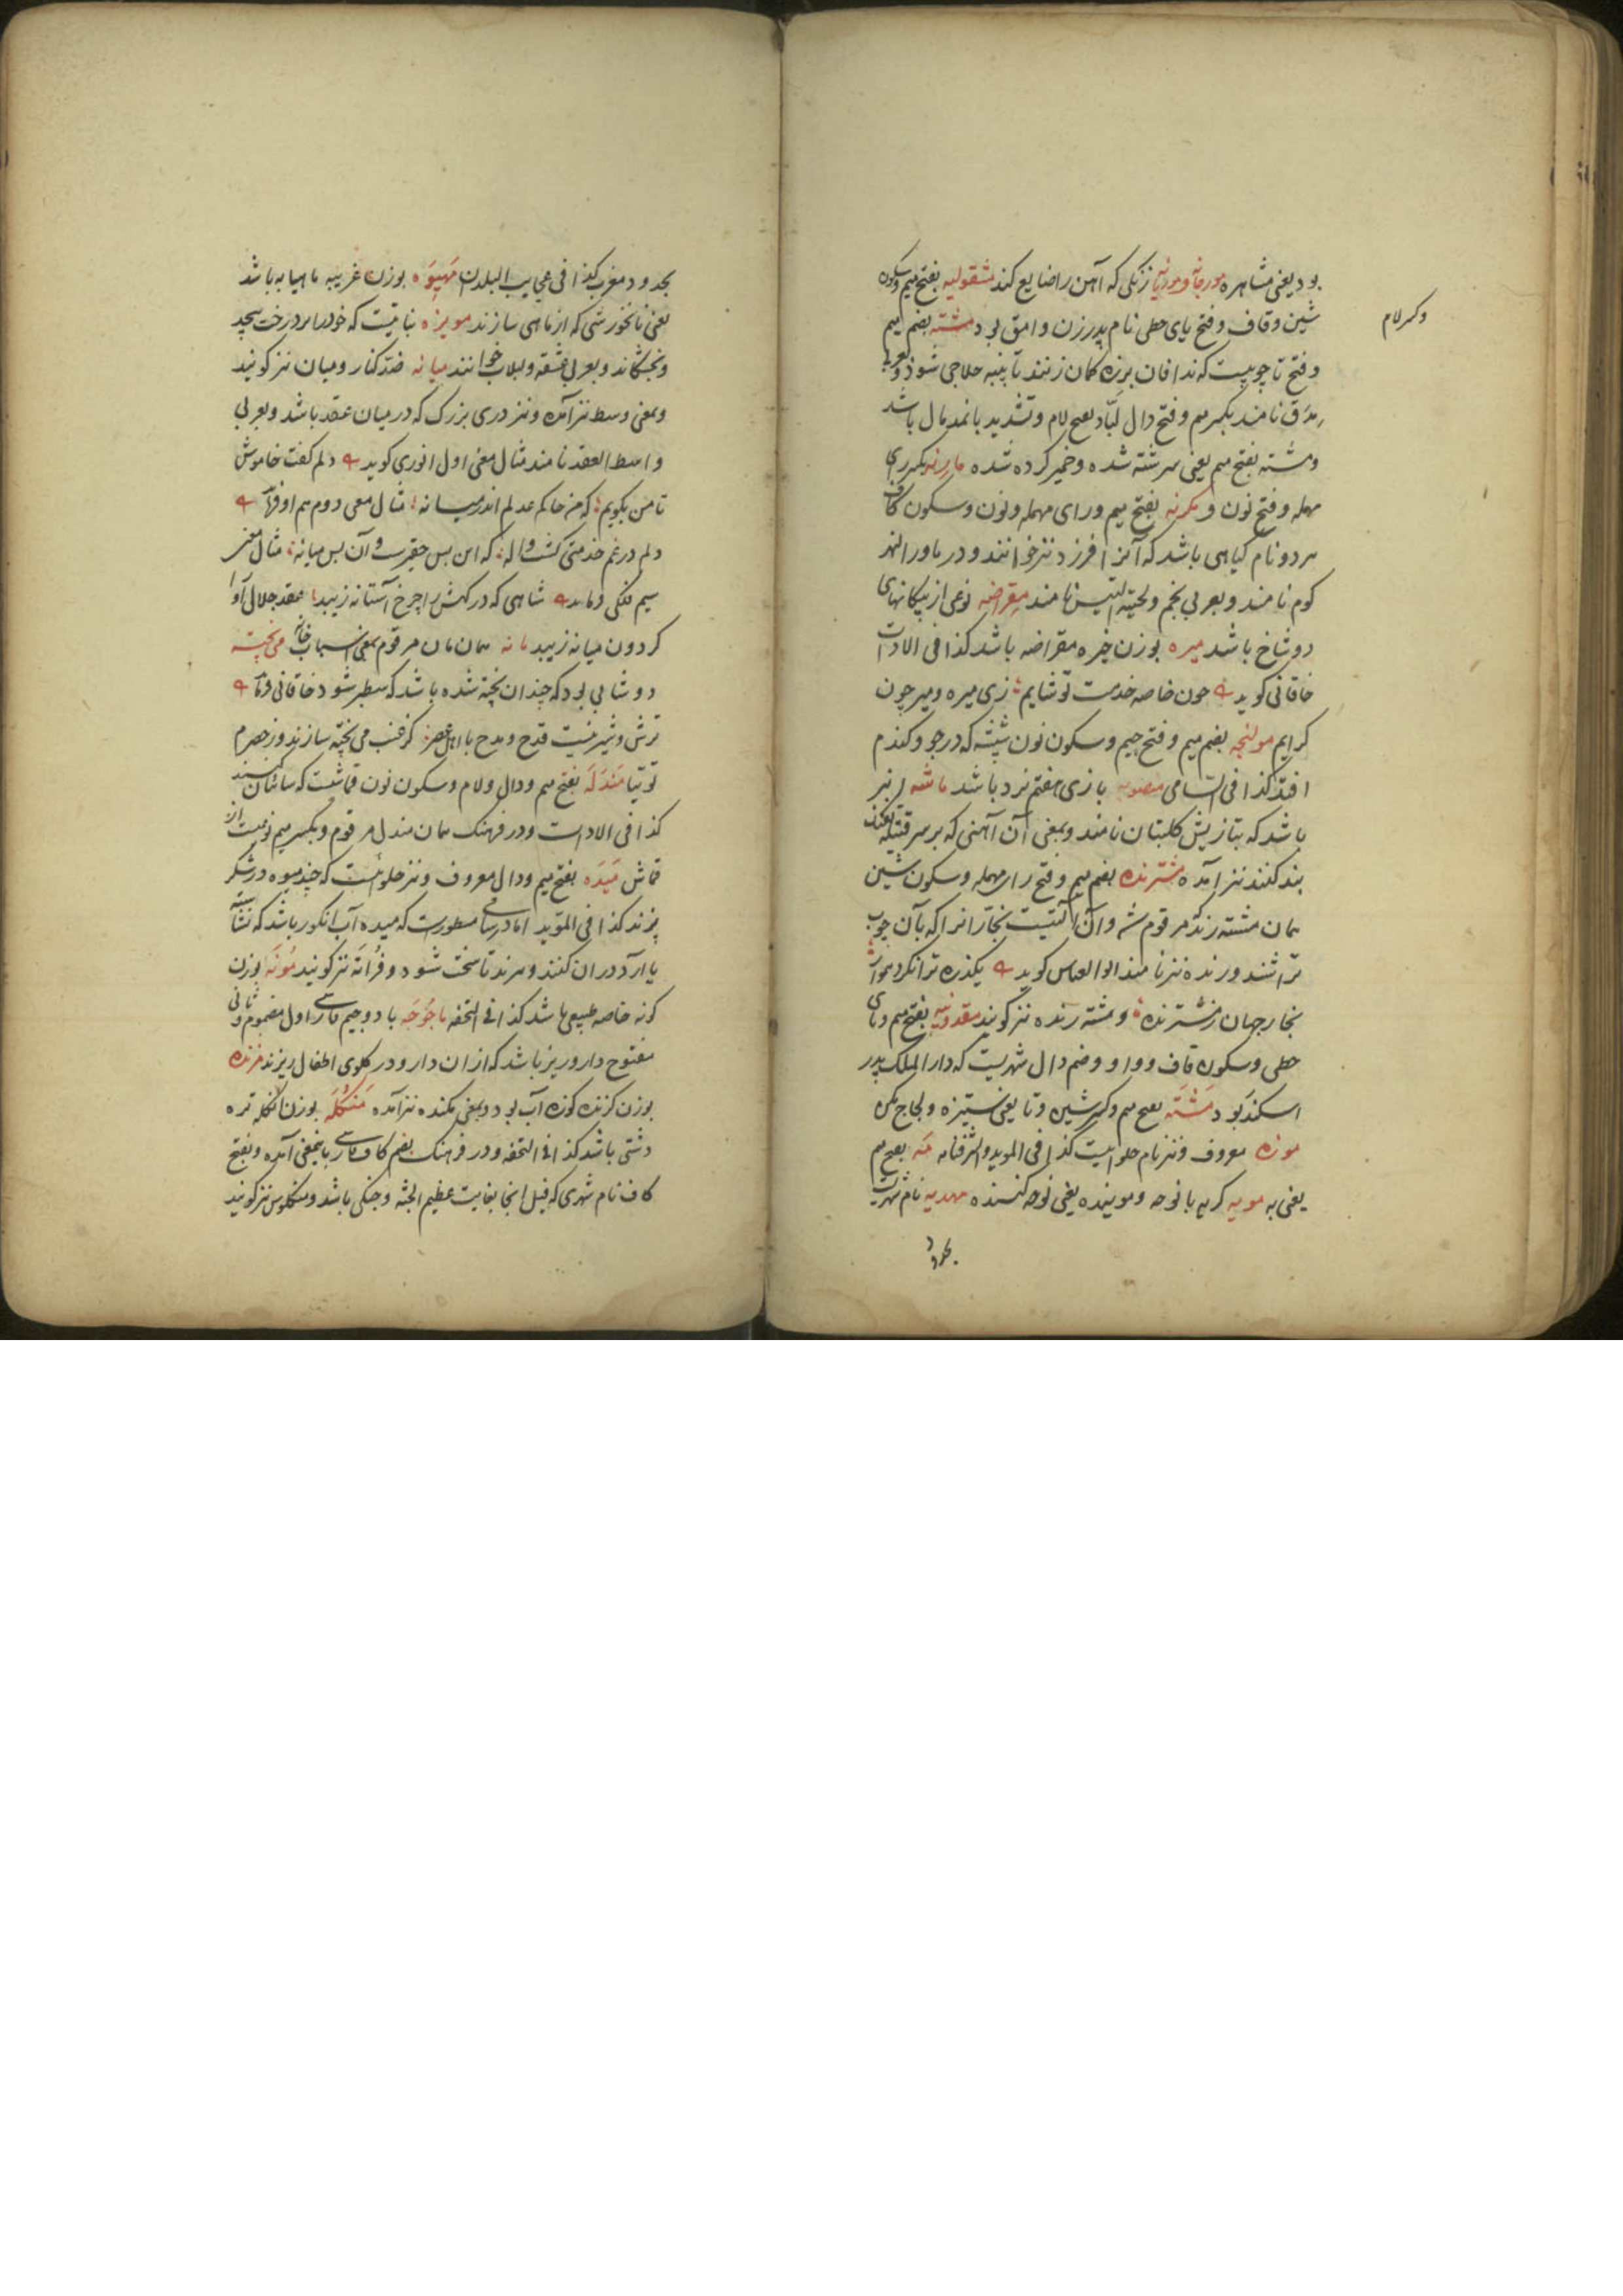 بود یعنی مشاهره مورچانه و موریانه زنگی که آهن را ضایع کند مشقولیه بفتح میم و سکون
شین و قاف و فتح یای حطی نام پدر زن وامق بود مشته بضم میم
و کسر لام
و فتح تا چوبیست که ندافان بر زه کمان زنند تا پنبه حلاجی شود و بعربی
مدق نامند بکسر میم و فتح دال لباد بفتح لام و تشدید با نمدمال باشد
و مشته بفتح میم یعنی سرشته شده و خمیر کرده شده مارنه بکسر رای
مهمله و فتح نون و مکرنه بفتح میم و رای مهمله و نون و سکون کاف
هر دو نام گیاهی باشد که آنرا فرزد نیز خوانند و در ماورا النهر
کوم نامند و بعربی نجم و لحیة التیس نامند مقراضه نوعی از پیکانهای
دو شاخ باشد میره بوزن خیره مقراضه باشد کذا فی الادات
خاقانی کوید چون خاصه خدمت تو شایم زی میره و میر چون
کرایم مولنجه بضم میم و فتح جیم و سکون نون شپشه که در جو و کندم
افتد کذا فی السامی منصوبه بازی هفتم نرد باشد ماشه انبر
باشد که بتازیش کلبتان نامند و بمعنی آن آهنی که بر سر فتیله تفنک
بند کنند نیز آمده مشترنده بضم میم و فتح رای مهمله و سکون شین
همان مشته رنده مرقوم شد و آن آلتیست نجارانرا که بآن چوب
تراشند و رنده نیز نامند ابوالعباس کوید یکذره ترا نکرد هموار
نجار جهان ز مشترنده و مشته رنده نیز کویند مقدونیه بفتح میم و یای
حطی و سکون قاف و واو و ضم دال شهریست که دار الملک پدر
اسکندر بود مشته بفتح میم و کسر شین و تا یعنی ستیزه و لجاج مکن
موزه معروف و نیز نام حلواییست کذا فی الموید و الشرفنامه مه بفتح میم
یعنی به مویه کریه با نوحه و موینده یعنی نوحه کننده مهدیه نام شهریست
بحدود
بحدود مغرب کذا فی عجایب البلدان مهیوه بوزن غریبه ماهیابه باشد
یعنی نانخورشی که از ماهی سازند مویزه نباتیست که خود را بر درخت پیچد
و بخشکاند و بعربی عشقه و لبلاب خوانند میانه ضد کنار و میان نیز کویند
و بمعنی وسط نیز آمده و نیز دری بزرک که در میان عقد باشد و بعربی
واسط العقد نامند مثال معنی اول انوری کوید دلم کفت خاموش
تا من بکویم که من حاکم عدلم اندر میانه مثال معنی دوم هم او فرماید
دلم در غم خدمتی کشت واله که این بس حقیرست و آن بس میانه مثال معنی
سیم فلکی فرماید شاهی که درکهش را چرخ آستانه زیبد عقد جلال او را
کردون میانه زیبد مانه همان مان مرقوم بمعنی اسباب خانه می پخته
دوشابی بود که چندان پخته شده باشد که سطبر شود خاقانی فرماید
ترش و شیرینست قدح و مدح با اهل عصر کز عنب می پخته سازند و ز حصرم
توتیا مندله بفتح میم و دال و لام و سکون نون قماشیست که سائبان کنند
کذا فی الادات و در فرهنک همان مندل مرقوم و بکسر میم نوعیست از
قماش میده بفتح میم و دال معروف و نیز حلوائیست که چند میوه در شکر
پزند کذا فی الموید اما در سامی مسطورست که میده آب انکور باشد که نشاسته
یا آرد در آن کنند و پزند تا سخت شود و فراته نیز کویند مونه بوزن
کونه خاصه طبیعی باشد کذا فی التحفه ماجوجه با دو جیم فارسی اول مضموم و ثانی
مفتوح داروریز باشد که از آن دارو در کلوی اطفال ریزند مزنده
بوزن کزنده کوزه آب بود و بمعنی مکنده نیز آمده منکله بوزن انکله تره
دشتی باشد کذا فی التحفه و در فرهنک بضم کاف فارسی باینمعنی آمده و بفتح
کاف نام شهری که فیل انجا بغایت عظیم الجثه و جنکی باشد و منکلوس نیز کویند